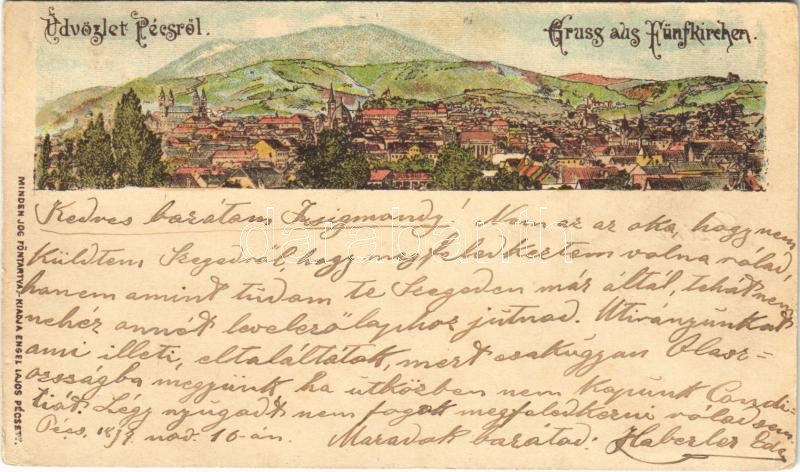 Üdvözlet Pécsről.
Gruss aus Fünfkirchen.
Kedves barátom Zsigmondy! Nem az az oka, hogy nem
küldtem Szegedről, hogy megfeledkeztem volna rólad,
hanem amint tudom te Szegeden már által, tehát nem
nehéz annót levelező laphoz jutnod. Utirányunkat
ami illeti, eltaláltátok, mert csakugyan Olasz=
országba megyünk, ha utközben nem kapunk Condi-
tiót. Légy nyugodt nem fogok megfeledkezni rólad sem.
Pécs, nov. 10-án. Maradok barátod: Haberler Ede
MINDEN JOG FÖNTARTVA - KIADJA ENGEL LAJOS PÉCSETT.
darabanth